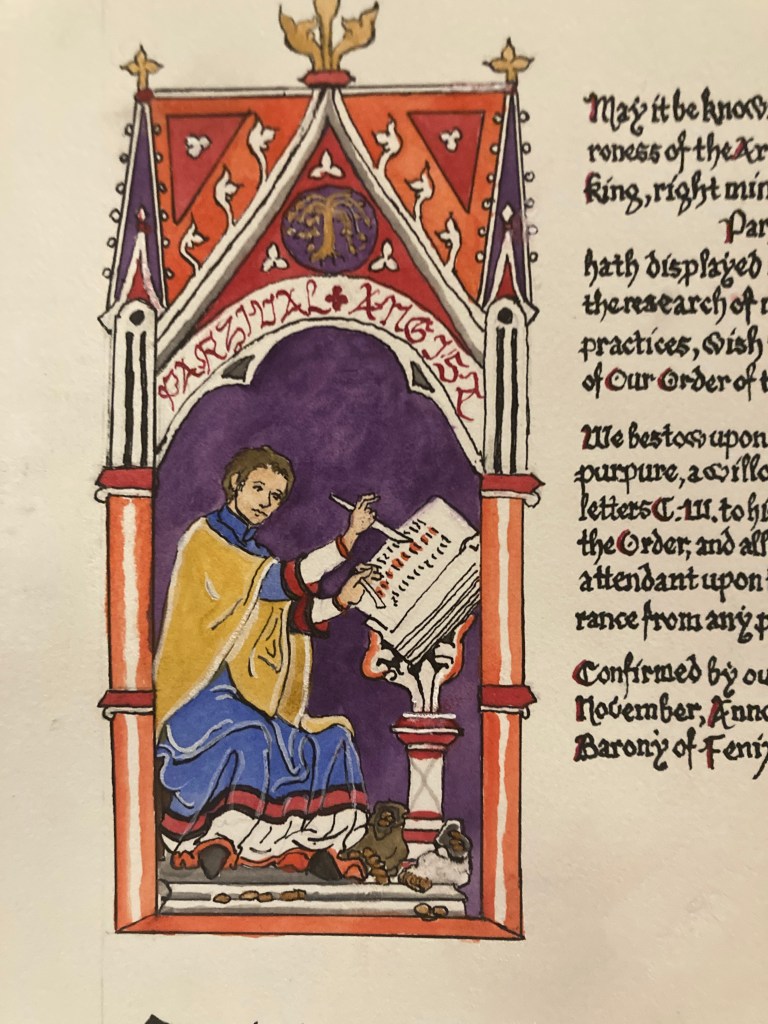 PARZIVAL ANGIST
May it be know
roness of the Ar
king, right min
Par
hath displayed
the research of
practices, wish
of Our Order of t
We bestow upon
purpure, a willo
letters C.III. to hi
the Order, and all
attendant upon
rance from any p
Confirmed by ou
November, Anno
Barony of Feni